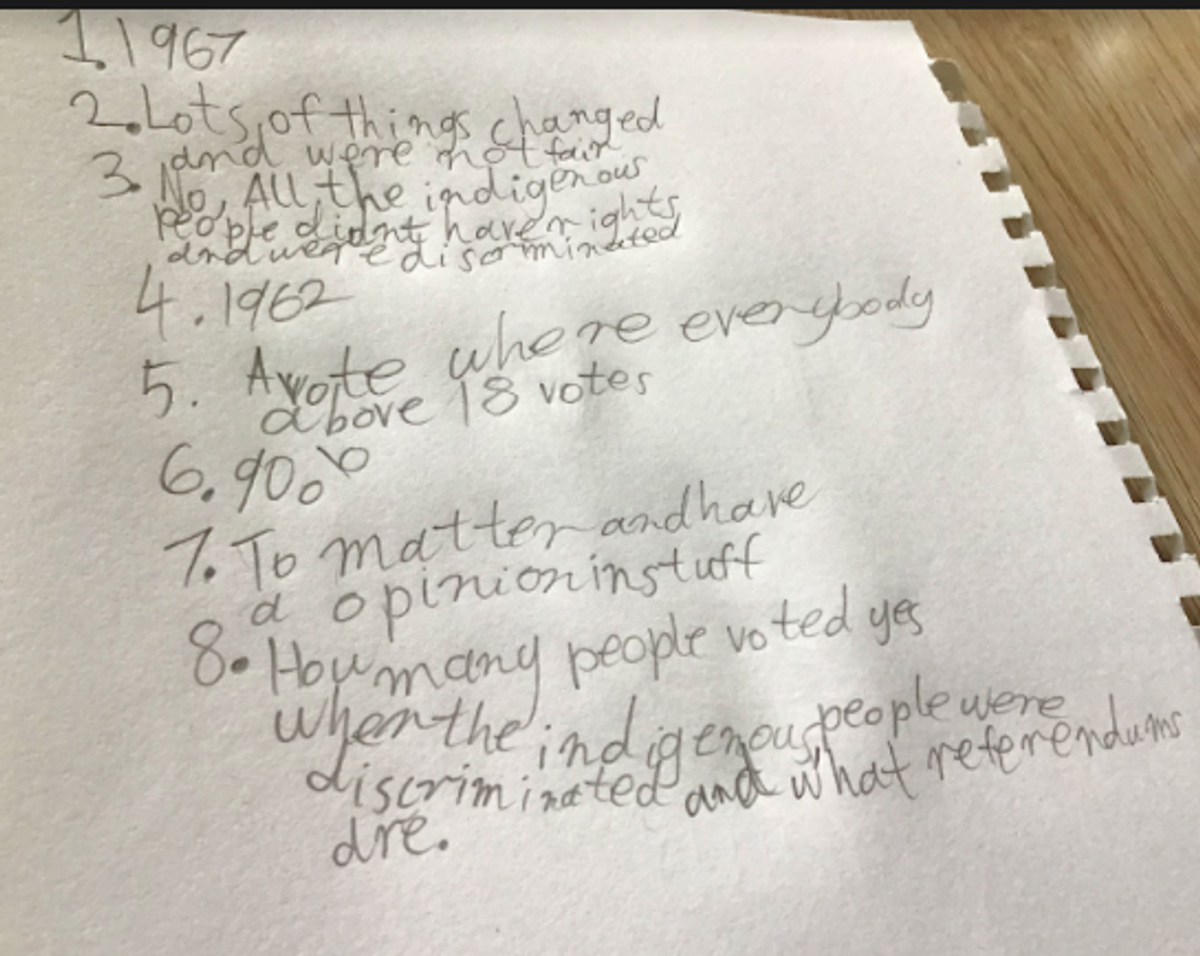 1. 1967
2. Lots of things changed
and were not fair
3. No, All the indigenous
people didnt have rights
and were discriminated
4. 1962
5. A vote where everybody
above 18 votes
6. 90%
7. To matter and have
a opinion in stuff
8. How many people voted yes
when the indigenous people were
discriminated and what referendums
are.